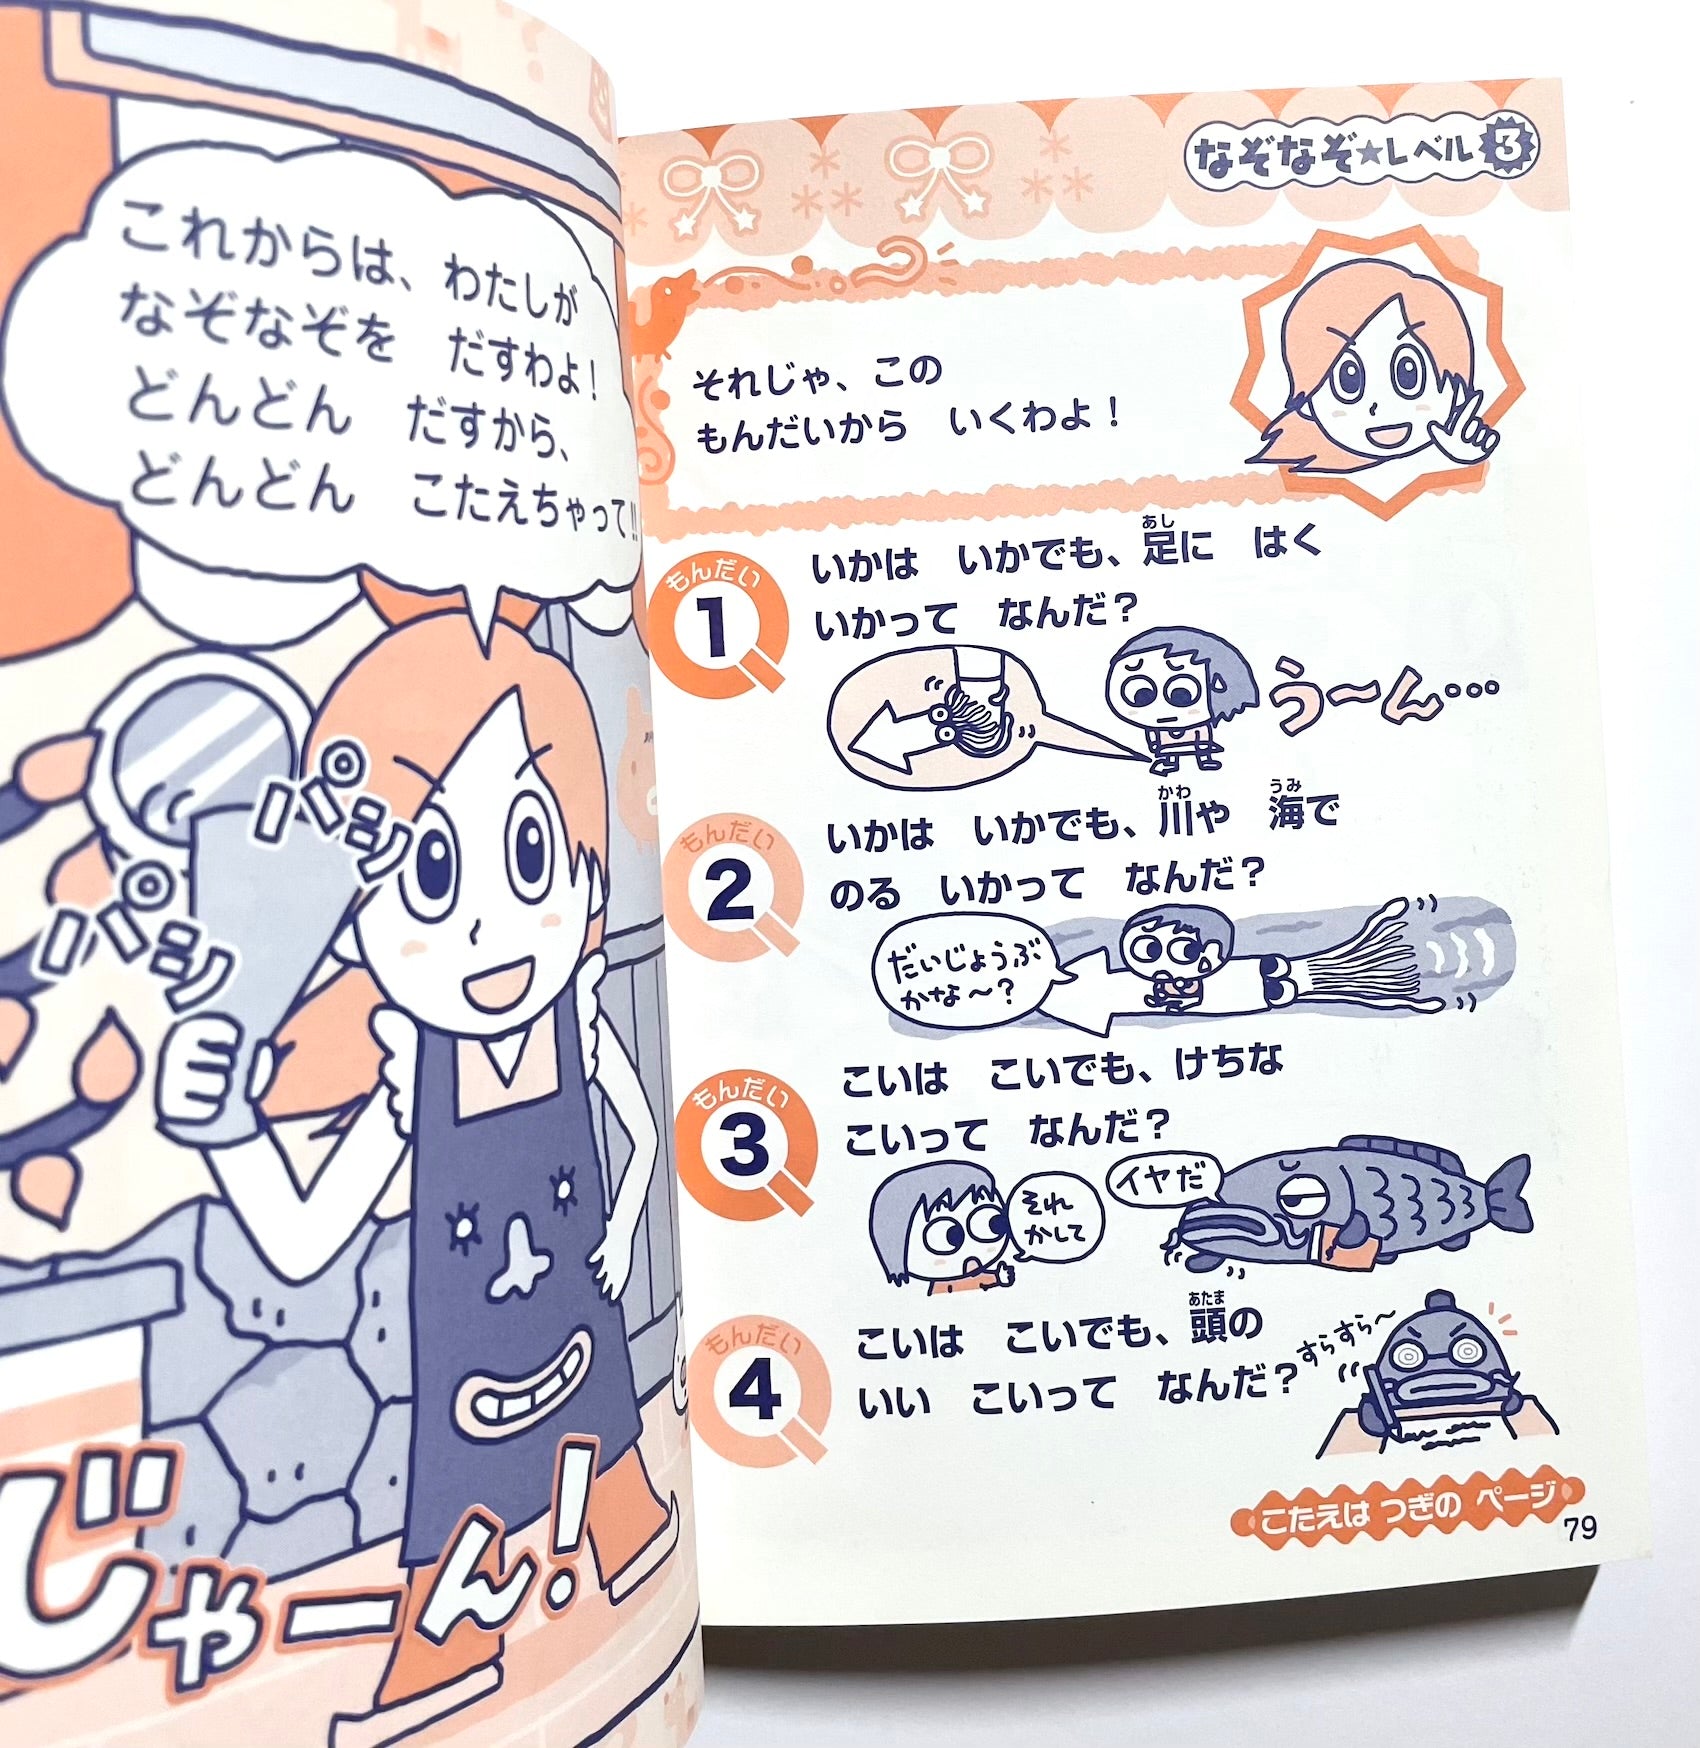 これからは、わたしが
なぞなぞを　だすわよ！
どんどん　だすから、
どんどん　こたえちゃって!!
パシ
パシ
じゃーん！
なぞなぞ★レベル3
それじゃ、この
もんだいから　いくわよ！
もんだい
1
いかは　いかでも、足に　はく
あし
いかって　なんだ？
う〜ん…
もんだい
2
いかは　いかでも、川や　海で
かわ
うみ
のる　いかって　なんだ？
だいじょうぶ
かな〜？
もんだい
3
こいは　こいでも、けちな
こいって　なんだ？
それ
かして
イヤだ
もんだい
4
こいは　こいでも、頭の
あたま
いい　こいって　なんだ？
すらすら〜
こたえは つぎの ページ
79